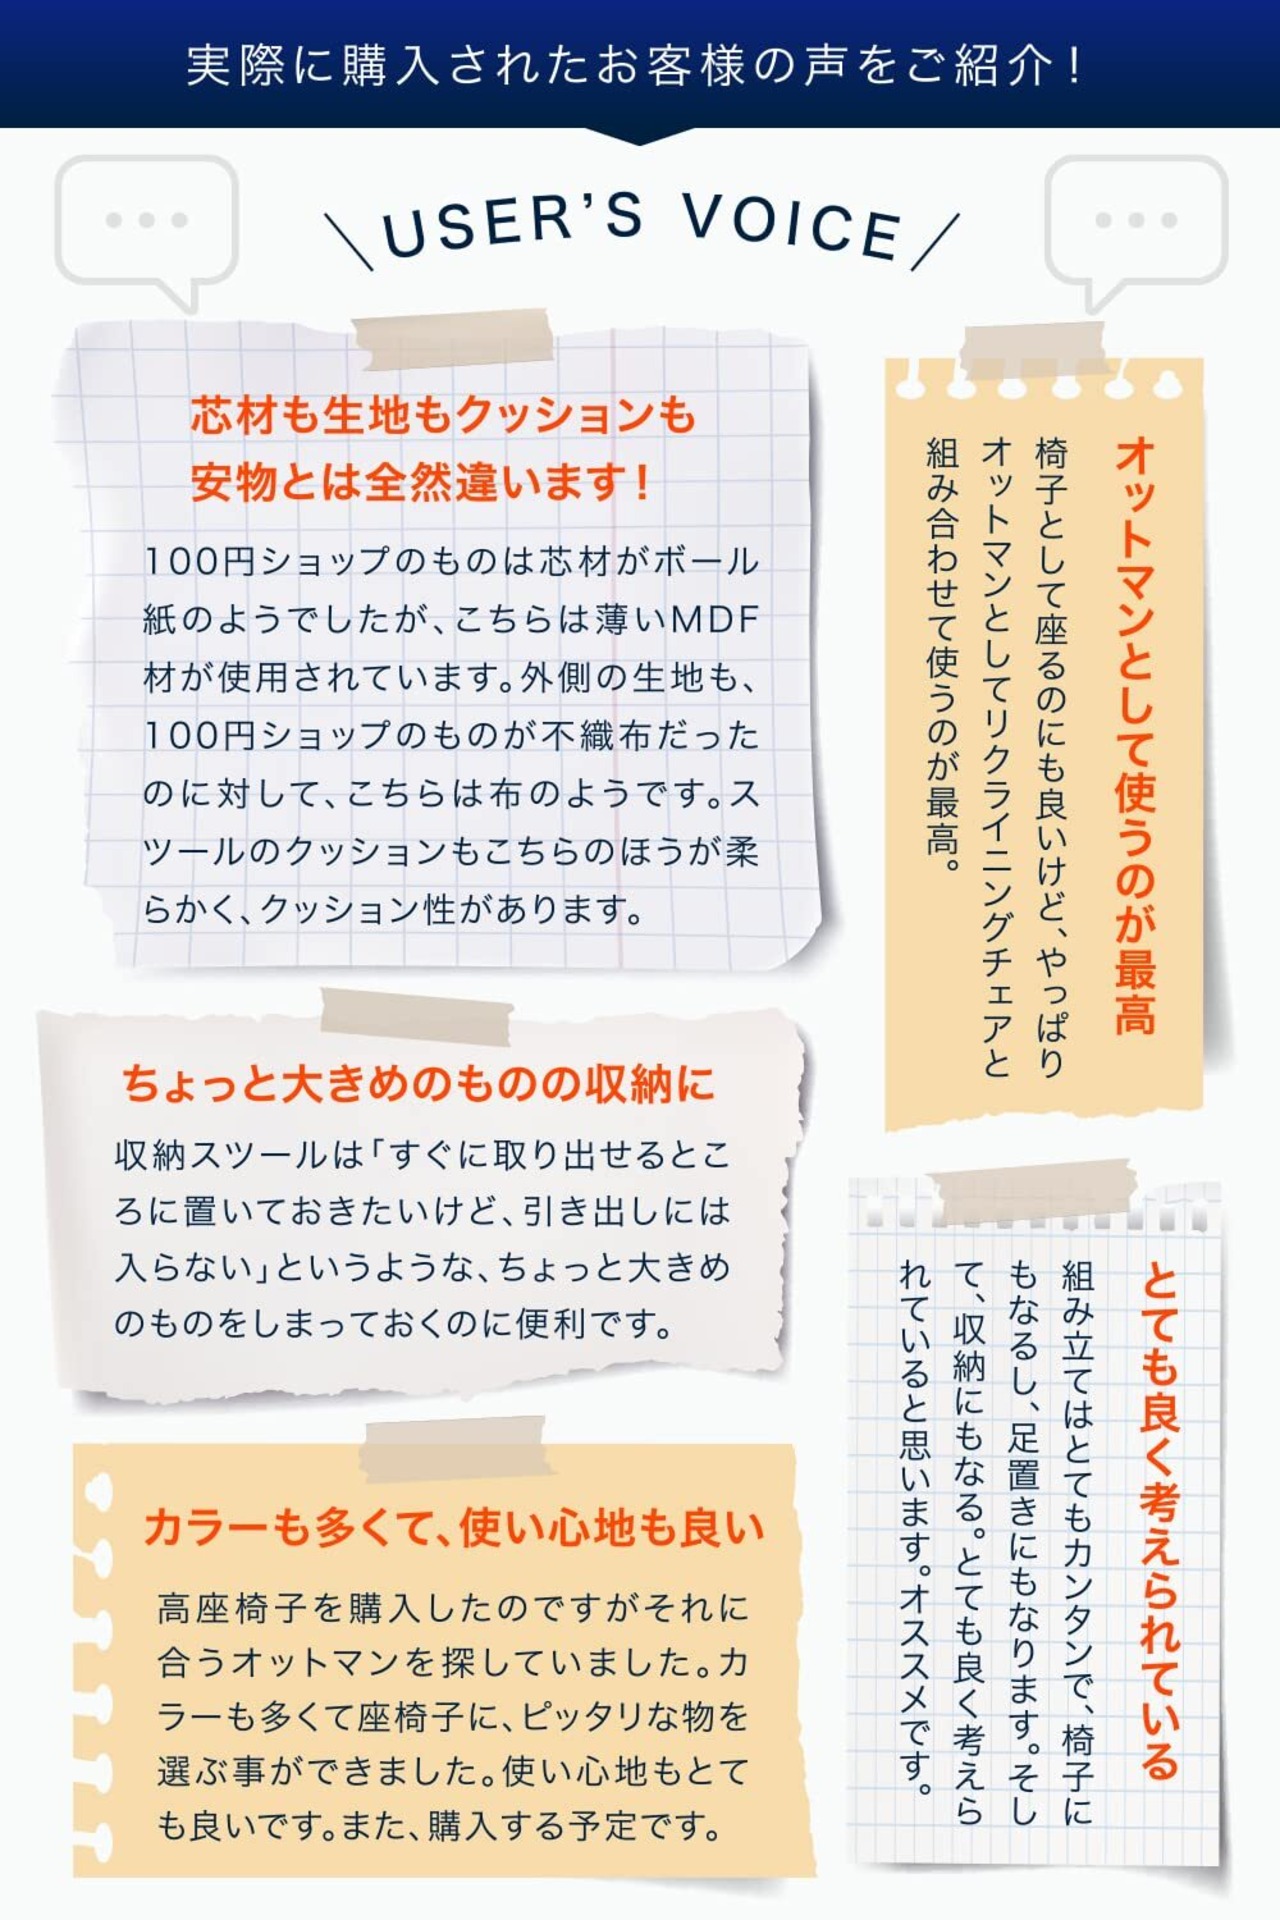 実際に購入されたお客様の声をご紹介！
USER'S VOICE
芯材も生地もクッションも
安物とは全然違います！
100円ショップのものは芯材がボール
紙のようでしたが、こちらは薄いMDF
材が使用されています。外側の生地も、
100円ショップのものが不織布だった
のに対して、こちらは布のようです。ス
ツールのクッションもこちらのほうが柔
らかく、クッション性があります。
オットマンとして使うのが最高
椅子として座るのにも良いけど、やっぱり
オットマンとしてリクライニングチェアと
組み合わせて使うのが最高。
ちょっと大きめのものの収納に
収納スツールは「すぐに取り出せるとこ
ろに置いておきたいけど、引き出しには
入らない」というような、ちょっと大きめ
のものをしまっておくのに便利です。
とても良く考えられている
組み立てはとてもカンタンで、椅子に
もなるし、足置きにもなります。そし
て、収納にもなる。とても良く考えら
れていると思います。オススメです。
カラーも多くて、使い心地も良い
高座椅子を購入したのですがそれに
合うオットマンを探していました。カ
ラーも多くて座椅子に、ピッタリな物を
選ぶ事ができました。使い心地もとて
も良いです。また、購入する予定です。